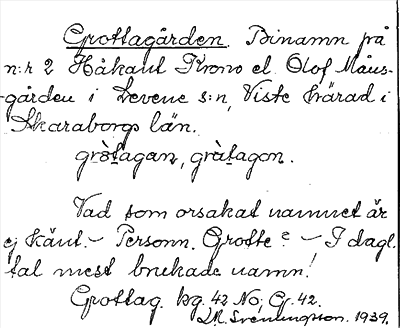 Grottagården. Binamn på
n:r 2 Håkant Krono el. Olof Måns-
gården i Levene s:n, Viste härad i
Skaraborgs län.
grò̀tagan, gràtagon.
Vad som orsakat namnet är
ej känt. – Personn. Grotte? – I dagl.
tal mest brukade namn!
Grottag. hg. 42 No, Gr. 42.
Svenningson. 1939.